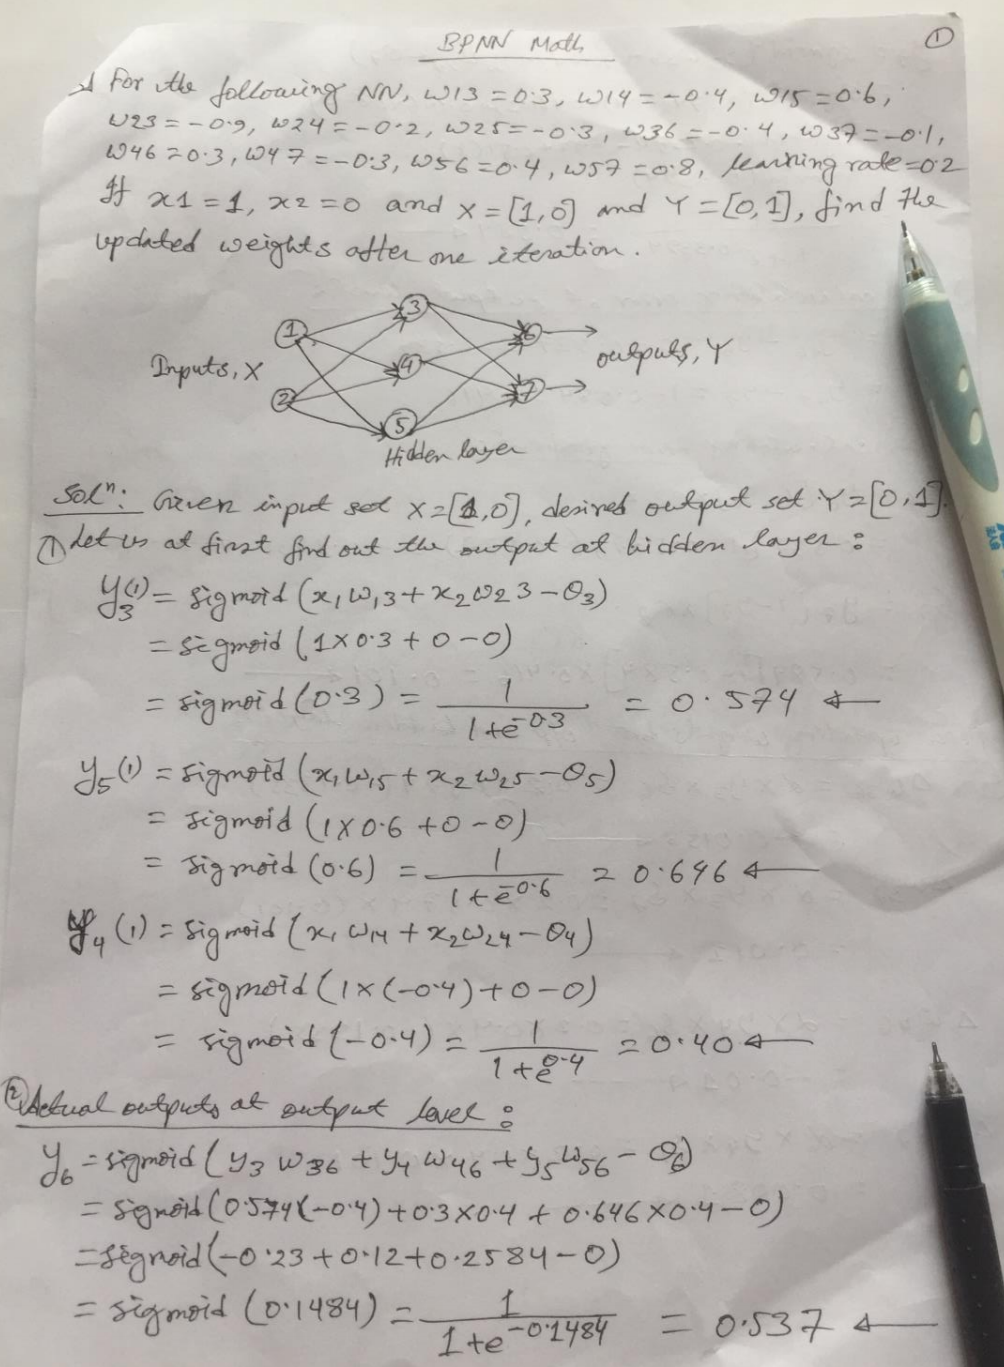 BPNN Math
①
For the following NN, w13 = 0.3, w14 = -0.4, w15 = 0.6,
w23 = -0.9, w24 = -0.2, w25 = -0.3, w36 = -0.4, w37 = -0.1,
w46 = 0.3, w47 = -0.3, w56 = 0.4, w57 = 0.8, learning rate = 0.2
If x1 = 1, x2 = 0 and X = [1,0] and Y = [0,1], find the
updated weights after one iteration.
1 3 6
Inputs, X 4 outputs, Y
2 5 7
Hidden layer
Solⁿ: Given input set X = [1,0], desired output set Y = [0,1].
① Let us at first find out the output at hidden layer:
y₃(1) = sigmoid (x₁w₁3 + x₂w₂3 - θ₃)
= sigmoid (1×0.3 + 0 - 0)
= sigmoid (0.3) = 1/(1+e^-0.3) = 0.574 ←
y₅(1) = sigmoid (x₁w₁₅ + x₂w₂₅ - θ₅)
= sigmoid (1×0.6 + 0 - 0)
= sigmoid (0.6) = 1/(1+e^-0.6) = 0.646 ←
y₄(1) = sigmoid (x₁w₁₄ + x₂w₂₄ - θ₄)
= sigmoid (1×(-0.4) + 0 - 0)
= sigmoid (-0.4) = 1/(1+e^0.4) = 0.40 ←
② Actual outputs at output level:
y₆ = sigmoid (y₃w₃₆ + y₄w₄₆ + y₅w₅₆ - θ₆)
= sigmoid (0.574×(-0.4) + 0.3×0.4 + 0.646×0.4 - 0)
= sigmoid (-0.23 + 0.12 + 0.2584 - 0)
= sigmoid (0.1484) = 1/(1+e^-0.1484) = 0.537 ←